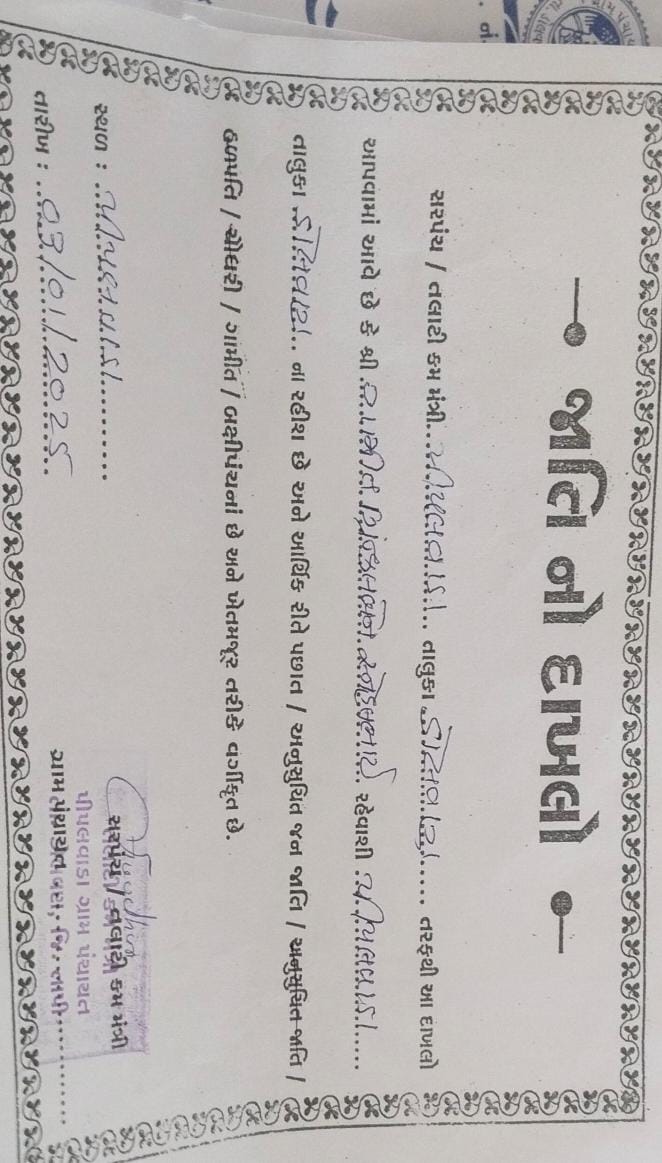 જાતિ નો દાખલો
સરપંચ / તલાટી કમ મંત્રી...પીપલવાડા.. તાલુકા ડોલવણ...... તરફથી આ દાખલો
આપવામાં આવે છે કે શ્રી ગામીત રહેવાશી પીપલવાડા......
તાલુકા ડોલવણ.. ના રહીશ છે અને આર્થિક રીતે પછાત / અનુસુચિત જન જાતિ / અનુસુચિત જાતિ /
હળપતિ / ચૌધરી / ગામીત / બક્ષીપંચનાં છે અને ખેતમજૂર તરીકે વર્ગીકૃત છે.
સ્થળ : ..પીપલવાડા..........
તારીખ : ..03/01/2025
સરપંચ / તલાટી કમ મંત્રી
પીપલવાડા ગ્રામ પંચાયત
ગ્રામ પંચાયત
જિ. તાપી